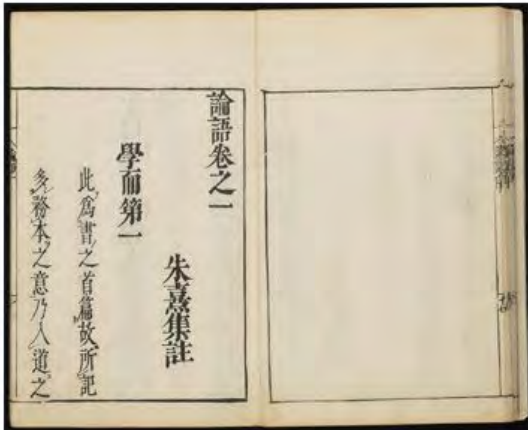 論語卷之一
朱熹集註
學而第一
此爲書之首篇故所記
多務本之意乃入道之